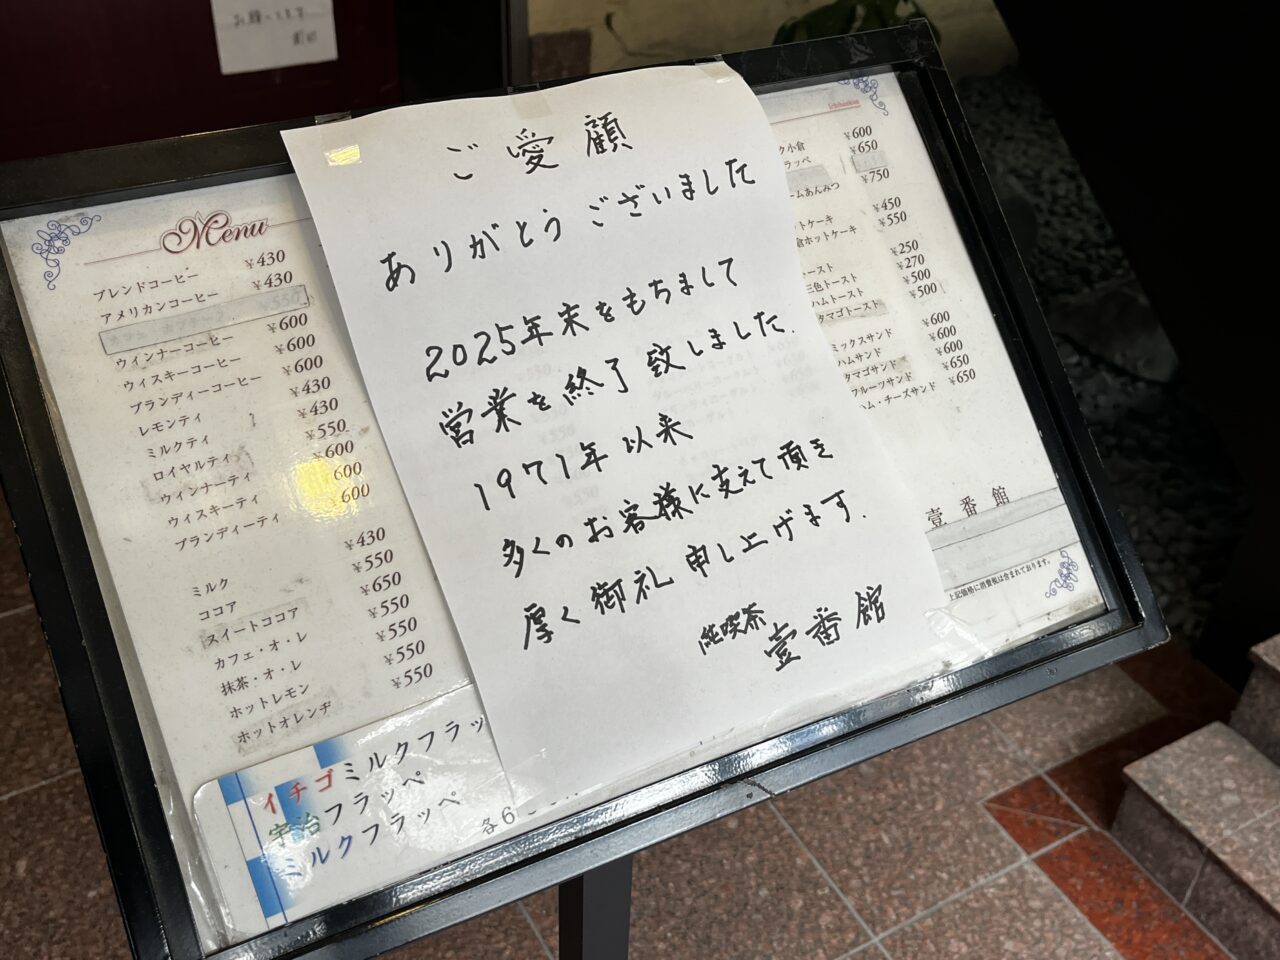 お願いします
Menu
ブレンドコーヒー ¥430
アメリカンコーヒー ¥430
¥550
ウィンナーコーヒー ¥600
ウィスキーコーヒー ¥600
ブランディーコーヒー ¥600
レモンティ ¥430
ミルクティ ¥430
ロイヤルティ ¥550
ウィンナーティ ¥600
ウィスキーティ ¥600
ブランディーティ ¥600
ミルク ¥430
ココア ¥550
スイートココア ¥650
カフェ・オ・レ ¥550
抹茶・オ・レ ¥550
ホットレモン ¥550
ホットオレンヂ ¥550
イチゴミルクフラッ
宇治フラッペ
ミルクフラッペ
各6
ご愛顧
ありがとうございました
2025年末をもちまして
営業を終了致しました.
1971年以来
多くのお客様に支えて頂き
厚く御礼申し上げます.
純喫茶
壹番館
Ichibankan
ク小倉 ¥600
ラッペ ¥650
ームあんみつ ¥750
ットケーキ ¥450
倉ホットケーキ ¥550
トースト ¥250
三色トースト ¥270
ハムトースト ¥500
タマゴトースト ¥500
ミックスサンド ¥600
ハムサンド ¥600
タマゴサンド ¥600
フルーツサンド ¥650
ハム・チーズサンド ¥650
壹番館
上記価格に消費税は含まれております。